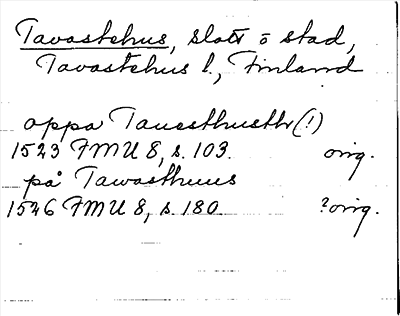 Tavastehus, slott o stad,
Tavastehus l., Finland
oppa Tauesthusthr (!)
1523 FMU 8, s. 103. orig.
på Tawasthuus
1526 FMU 8, s. 180. ? orig.